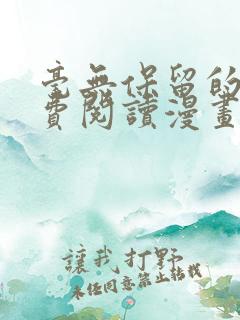 毫無保留的
費閱讀漫畫
讓我打野
未經同意禁止轉載